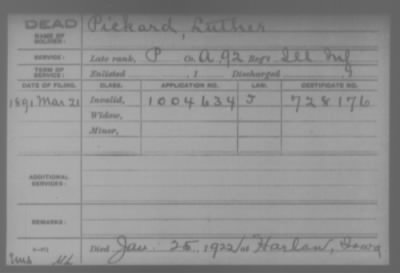 DEAD
NAME OF SOLDIER: Pickard, Luther
SERVICE: Late rank, P Co. A, 92 Reg't Ill Inf
TERM OF SERVICE: Enlisted , 1 Discharged , 1
DATE OF FILING. CLASS. APPLICATION NO. LAW. CERTIFICATE NO.
1891 Mar 21 Invalid, 1004634 J 728176
Widow,
Minor,
ADDITIONAL SERVICES:
REMARKS:
Died Jan. 25, 1922, at Harlan, Iowa